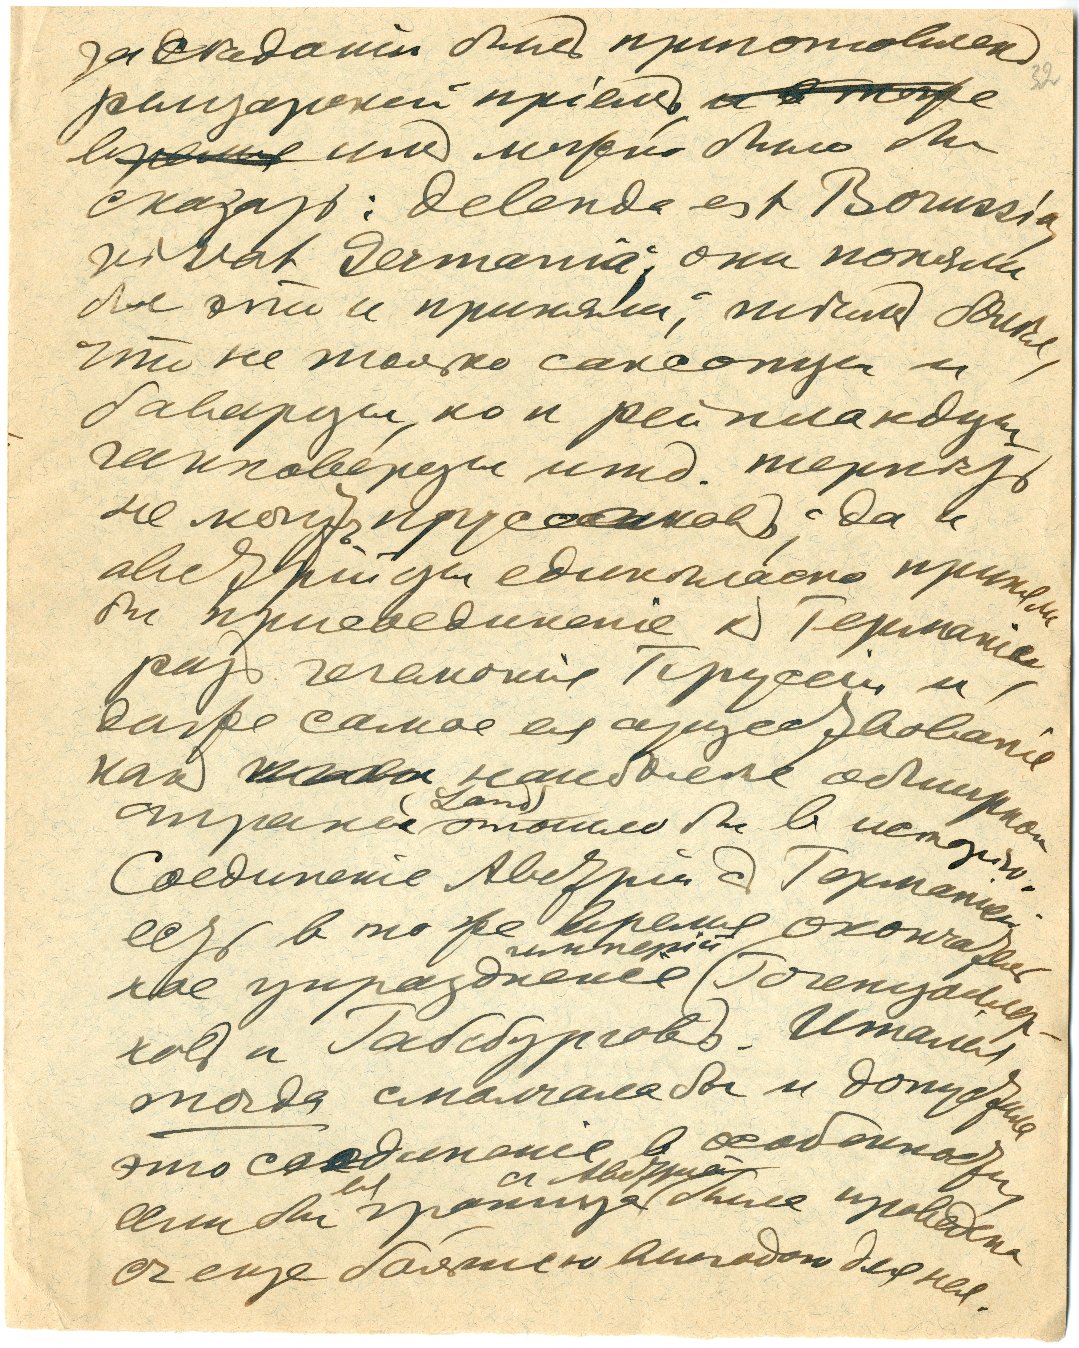 засѣданіи былъ приготовленъ
32
рыцарскій пріемъ, и в тоже
время имъ можно было бы
сказать: delenda est Borussia,
vivat Germania; они поняли
бы это и приняли; тѣмъ болѣе,
что не только саксонцы и
баварцы, но и рейнландцы,
ганноверцы итд. терпѣть
не могутъ пруссаковъ; да и
австрійцы единогласно приняли
бы присоединеніе къ Германіи,
разъ гегемонія Пруссіи и
даже самое ея существованіе
какъ наиболѣе обширной
страны (Land) отошло бы в исторію.
Соединеніе Австріи съ Германіей
есть в то же время окончатель
ное упраздненіе имперій (Гогенцоллер-
новъ и Габсбурговъ. Италія
тогда смолчала бы и допустила
это соединеніе в особенности
если бы ея граница съ Австріей была проведена
съ еще большею выгодою для нея.